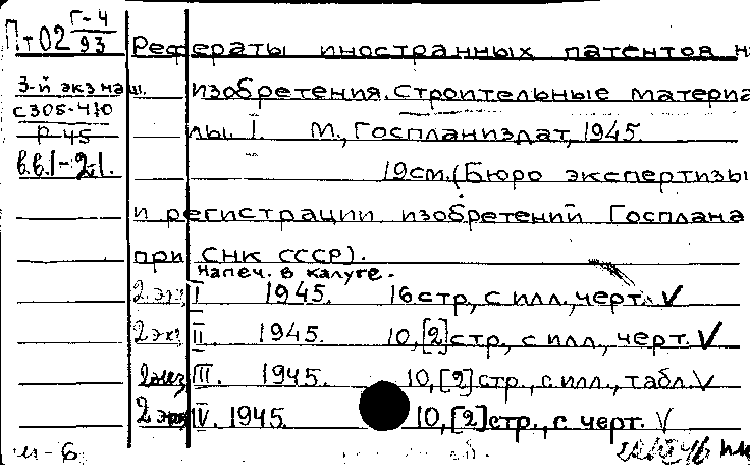 Пт02 Г-4/93
Рефераты иностранных патентов н
3-й экз наш. изобретения. Строительные материа
с 305-410
Р-45
лы. I. М., Госпланиздат, 1945.
в.в.1-2.1.
19см. (Бюро экспертизы
и регистрации изобретений Госплана
при СНК СССР).
Напеч. в Калуге.
2 экз I 1945. 16 стр., с илл., черт. V
2 экз II. 1945. 10,[2] стр., с илл., черт. V
2 экз III. 1945. 10,[2] стр., с илл., табл. V
2 экз IV. 1945. 10,[2] стр., с черт. V